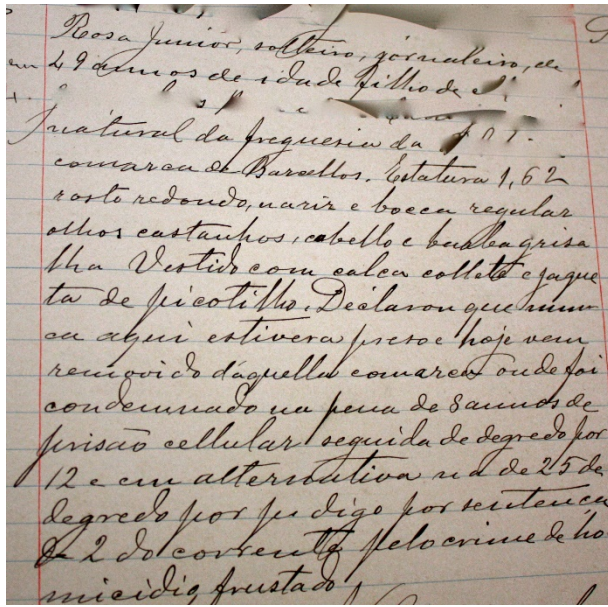 Rosa Junior, solteiro, jornaleiro, de
49 annos de idade filho de
natural da freguesia da
comarca de Barcellos. Estatura 1,62
rosto redondo, nariz e bocca regular
olhos castanhos, cabello e barba grisa
lha Vestido com calca collete e jaque
ta de picotilho. Declarou que nun-
ca aqui estivera preso e hoje vem
removido d'aquella comarca onde foi
condemnado na pena de 8 annos de
prisão cellular seguida de degredo por
12 e em alternativa na de 25 de
degredo por ju digo por sentença
de 2 do corrente pelo crime de ho
micidio frustado